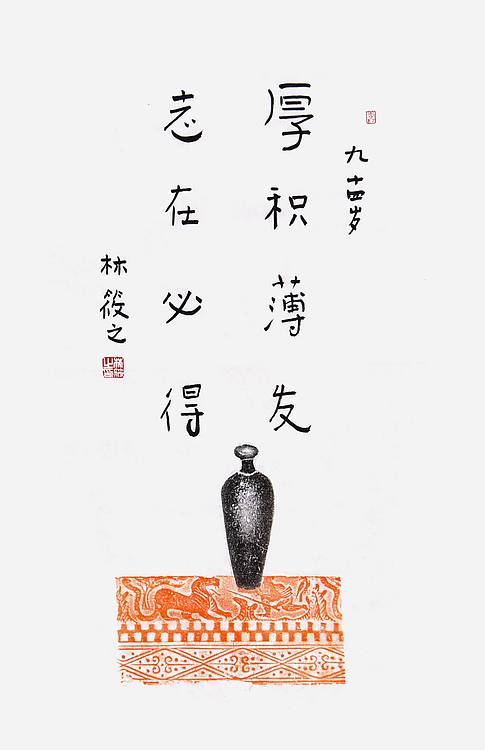 九十四岁
厚积薄发
志在必得
林筱之